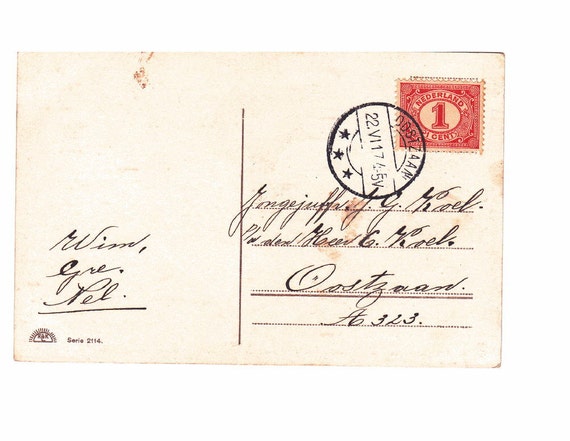 NEDERLAND
1
CENT
OOSTZAAN
22.VI.17.4-5V
Jongejuffr. J. G. Kock.
p/a den Heer C. Kock.
Oostzaan.
A 323.
Wim,
Gre.
Nel.
Serie 2114.